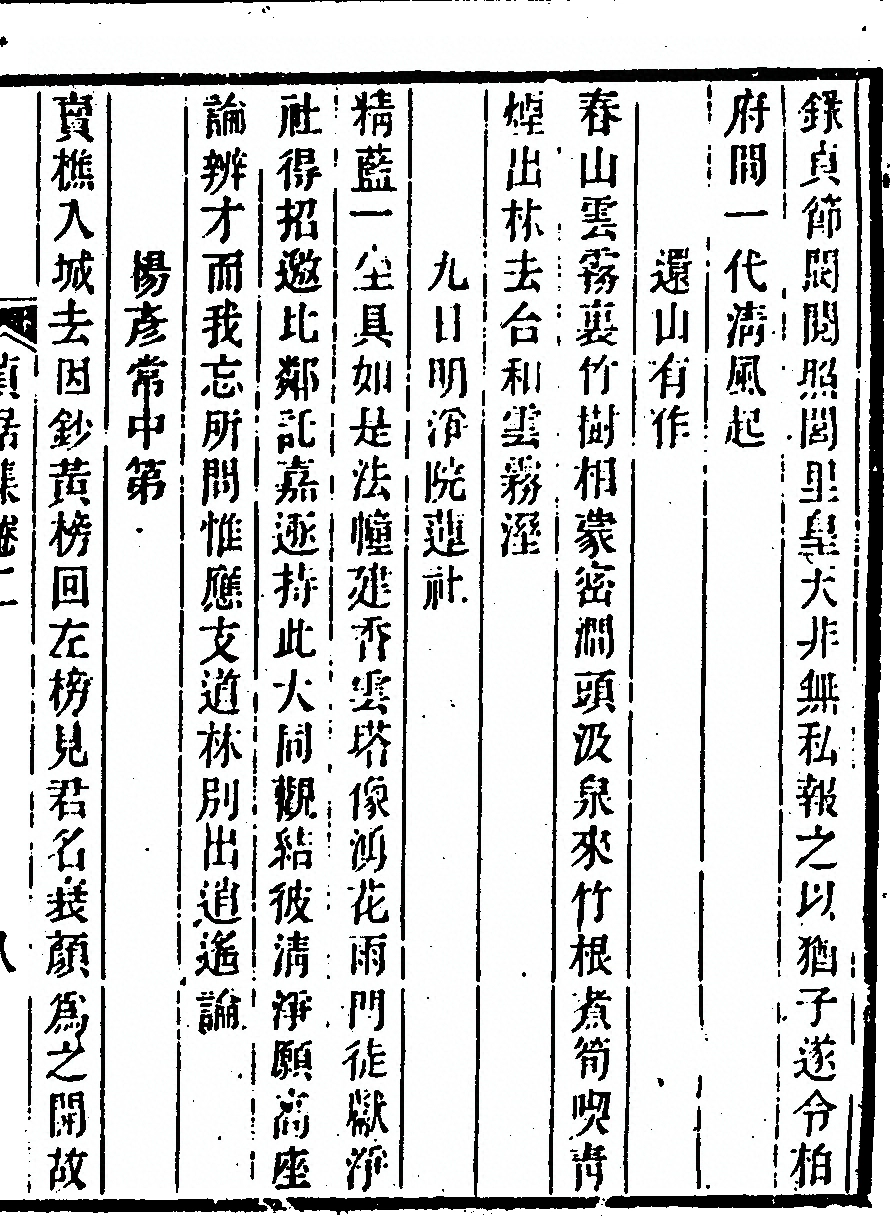 錄貞節閥閱照閭里皇天非無私報之以猶子遂令柏
府間一代清風起
還山有作
春山雲霧裏竹樹相蒙密澗頭汲泉來竹根煮筍喫青
煙出林去合和雲霧溼
九日明淨院蓮社
精藍一坐具如是法幢建香雲塔像湧花雨門徒獻淨
社得招邀比鄰託嘉遯持此大同觀結彼清淨願高座
論辨才而我忘所問惟應支道林別出逍遙論
楊彥常中第
賣樵入城去因鈔黃榜回左榜見君名衰顏為之開故
貞居集卷二
八